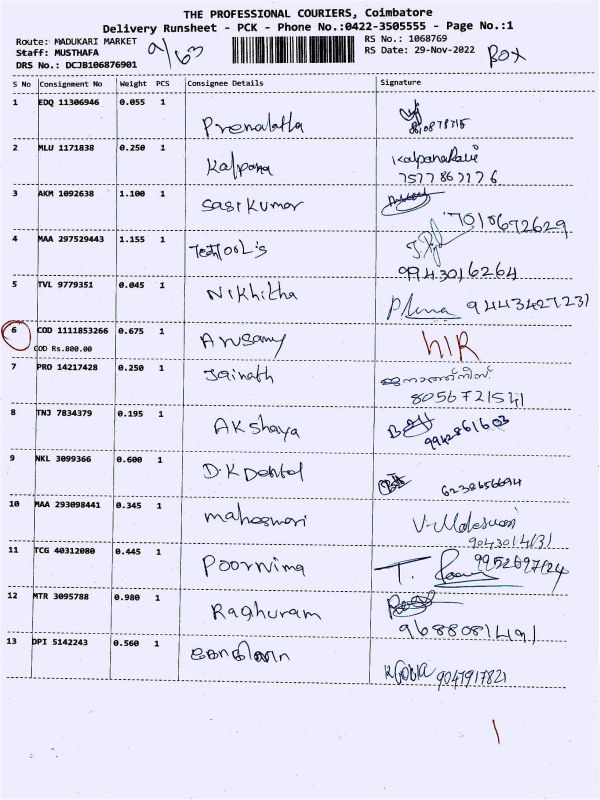 THE PROFESSIONAL COURIERS, Coimbatore
Delivery Runsheet - PCK - Phone No.:0422-3505555 - Page No.:1
Route: MADUKARI MARKET
Staff: MUSTHAFA
DRS No.: DCJB106876901
a/63
RS No.: 1068769
RS Date: 29-Nov-2022
BOX
S No Consignment No Weight PCS Consignee Details Signature
1 EDQ 11306946 0.055 1 Premalatha
2 MLU 1171838 0.250 1 Kalpana KalpanaRavi
7577867776
3 AKM 1092638 1.100 1 Sasi Kumar 7010672629
4 MAA 297529443 1.155 1 TechTOOL's
9943016264
5 TVL 9779351 0.045 1 Nikhitha 9443427231
6 COD 1111853266 0.675 1 Arusamy HIR
COD Rs.800.00
7 PRO 14217428 0.250 1 Jainath
8056721541
8 TNJ 7834379 0.195 1 Akshaya
9942861603
9 NKL 3099366 0.600 1 D.K Dental 6238656694
10 MAA 293098441 0.345 1
11 TCG 40312080 0.445 1 Poornima
12 MTR 3095788 0.980 1 Raghuram
9688081491
13 DPI 5142243 0.560 1
9041917821